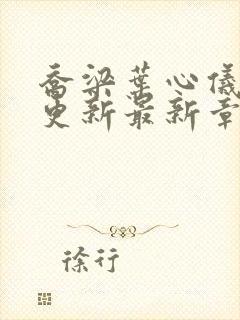 乔梁叶心仪
更新最新章
徐行